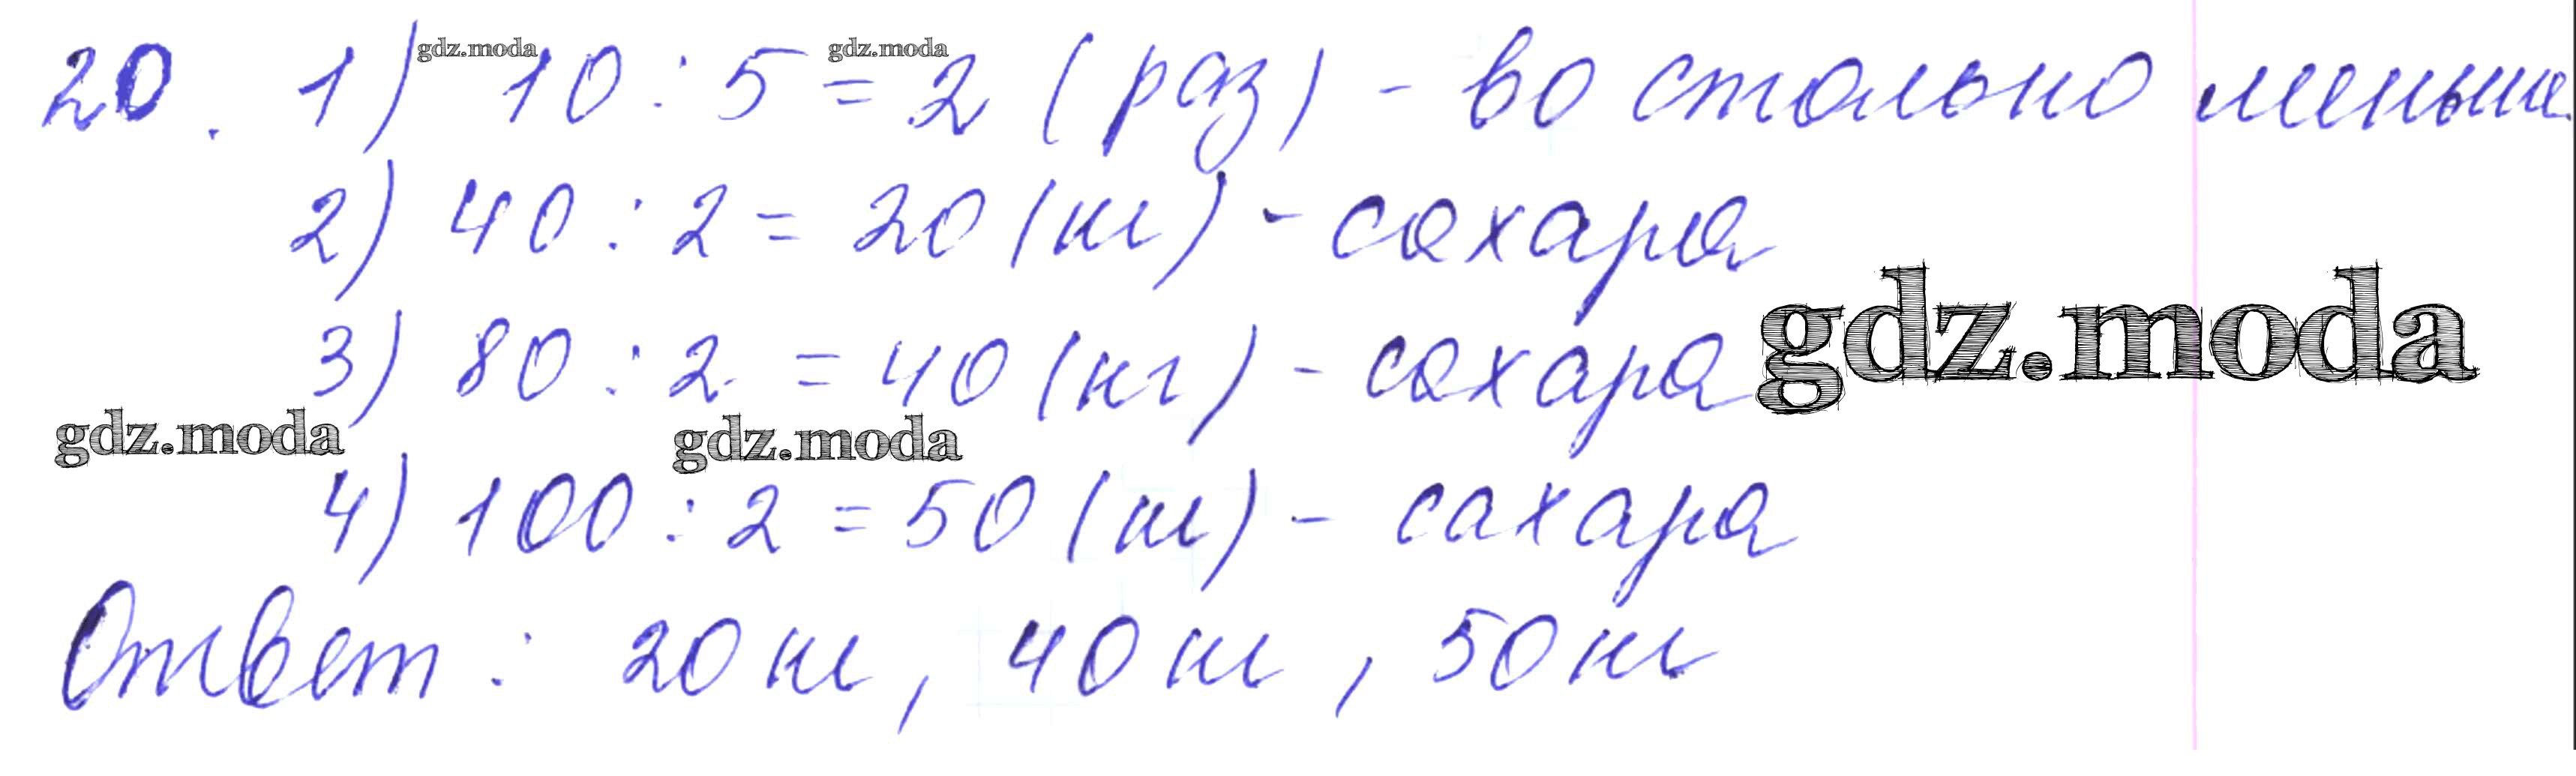 20. 1) 10 : 5 = 2 (раз) - во столько меньше.
2) 40 : 2 = 20 (кг) - сахара
3) 80 : 2 = 40 (кг) - сахара
4) 100 : 2 = 50 (кг) - сахара
Ответ : 20 кг, 40 кг, 50 кг
gdz.moda
gdz.moda
gdz.moda
gdz.moda
gdz.moda